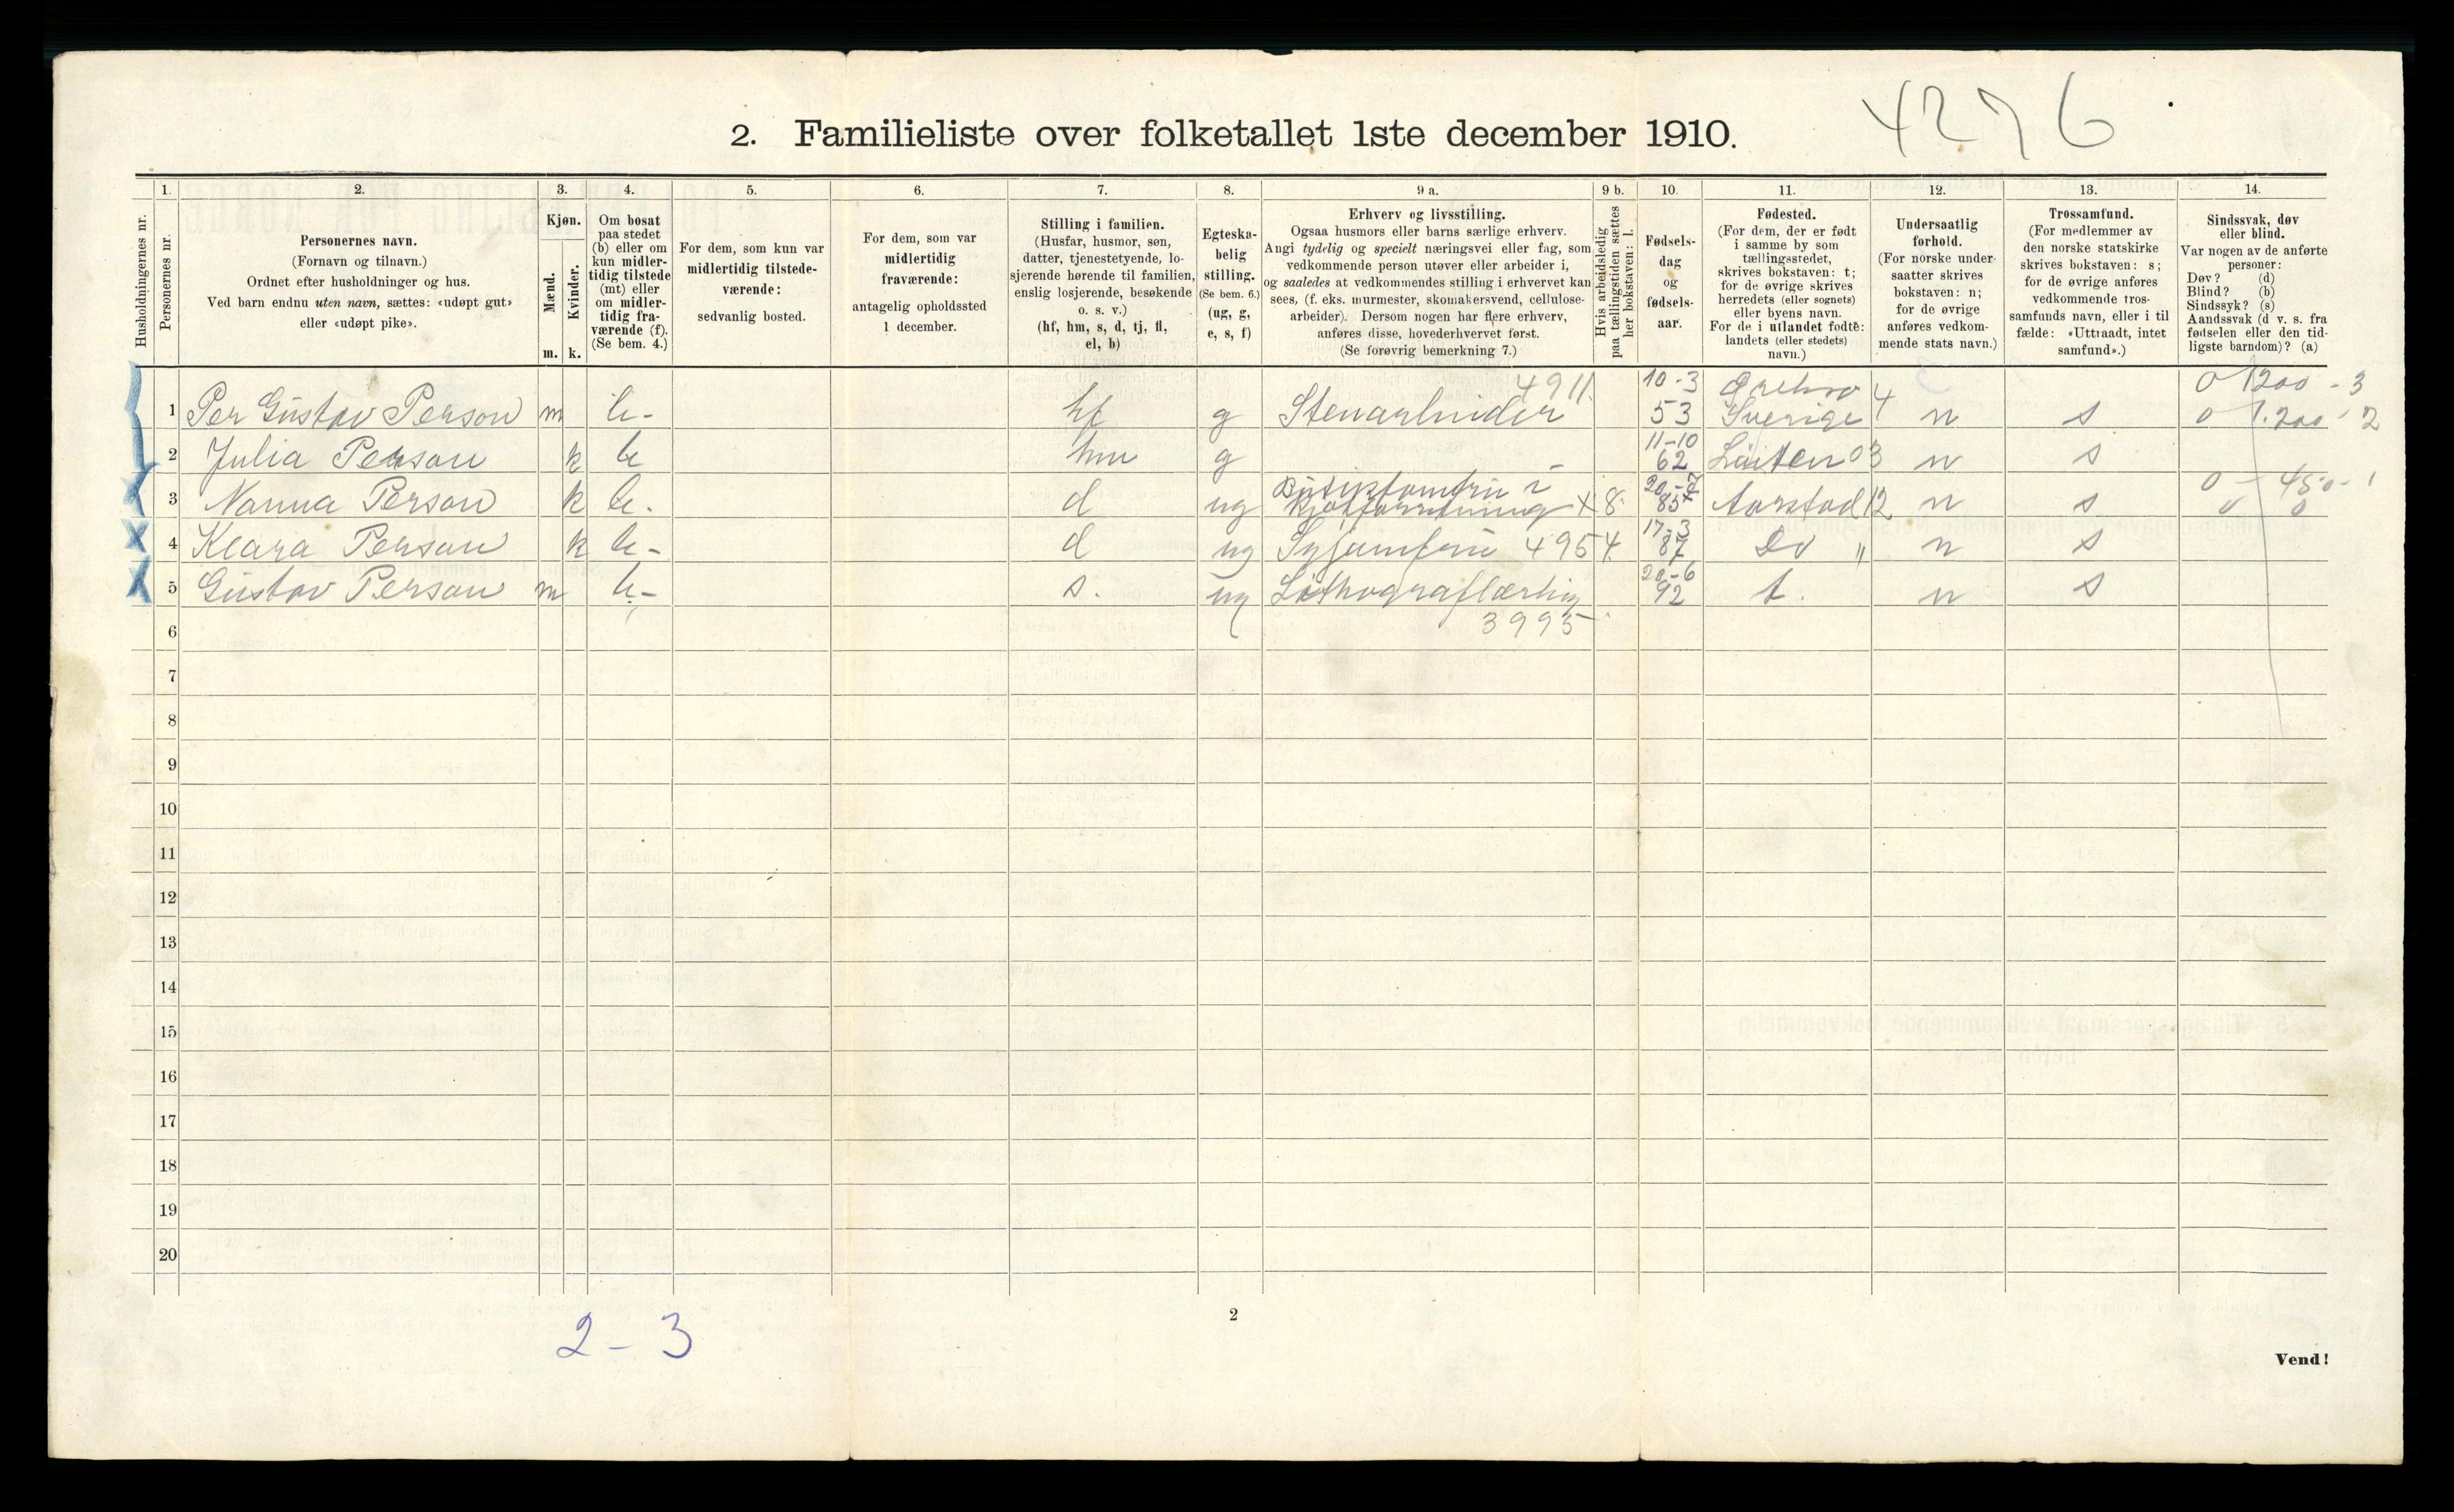 4276
2. Familieliste over folketallet 1ste december 1910.
1. 2. 3. 4. 5. 6. 7. 8. 9 a. 9 b. 10. 11. 12. 13. 14.
Husholdningernes nr.
Personernes nr.
Personernes navn.
(Fornavn og tilnavn.)
Ordnet efter husholdninger og hus.
Ved barn endnu uten navn, sættes: «udøpt gut»
eller «udøpt pike».
Kjøn.
Mænd.
Kvinder.
m. k.
Om bosat
paa stedet
(b) eller om
kun midler-
tidig tilstede
(mt) eller
om midler-
tidig fra-
værende (f).
(Se bem. 4.)
For dem, som kun var
midlertidig tilstede-
værende:
sedvanlig bosted.
For dem, som var
midlertidig
fraværende:
antagelig opholdssted
1 december.
Stilling i familien.
(Husfar, husmor, søn,
datter, tjenestetyende, lo-
sjerende hørende til familien,
enslig losjerende, besøkende
o. s. v.)
(hf, hm, s, d, tj, fl,
el, b)
Egteska-
belig
stilling.
(Se bem. 6.)
(ug, g,
e, s, f)
Erhverv og livsstilling.
Ogsaa husmors eller barns særlige erhverv.
Angi tydelig og specielt næringsvei eller fag, som
vedkommende person utøver eller arbeider i,
og saaledes at vedkommendes stilling i erhvervet kan
sees, (f. eks. murmester, skomakersvend, cellulose-
arbeider). Dersom nogen har flere erhverv,
anføres disse, hovederhvervet først.
(Se forøvrig bemerkning 7.)
Hvis arbeidsledig
paa tællingstiden sættes
her bokstaven: l.
Fødsels-
dag
og
fødsels-
aar.
Fødested.
(For dem, der er født
i samme by som
tællingsstedet,
skrives bokstaven: t;
for de øvrige skrives
herredets (eller sognets)
eller byens navn.
For de i utlandet fødte:
landets (eller stedets)
navn.)
Undersaatlig
forhold.
(For norske under-
saatter skrives
bokstaven: n;
for de øvrige
anføres vedkom-
mende stats navn.)
Trossamfund.
(For medlemmer av
den norske statskirke
skrives bokstaven: s;
for de øvrige anføres
vedkommende tros-
samfunds navn, eller i til
fælde: «Uttraadt, intet
samfund».)
Sindssvak, døv
eller blind.
Var nogen av de anførte
personer:
Døv? (d)
Blind? (b)
Sindssyk? (s)
Aandssvak (d v. s. fra
fødselen eller den tid-
ligste barndom)? (a)
4911 10-3 Ørebro 0 1200 - 3
1 Per Gustav Person m b- hf g Stenarbeider 53 Sverige 4 n s 0 1.200 - 2
11-10
2 Julia Person k b hm g 62 Løiten 03 n s
20-7 0 - 450 - 1
3 Nanna Person k b. d ug Kjøtforretning 8. 85 Aarstad 12 n s 0 0
17-3
4 Klara Person k b- d ug Syjomfru 4954. 87 Do " n s
20-6
5 Gustav Person m b- s. ug Lithograflærling 92 t. n s
6 3995
7
8
9
10
11
12
13
14
15
16
17
18
19
20
2
2-3
Vend!